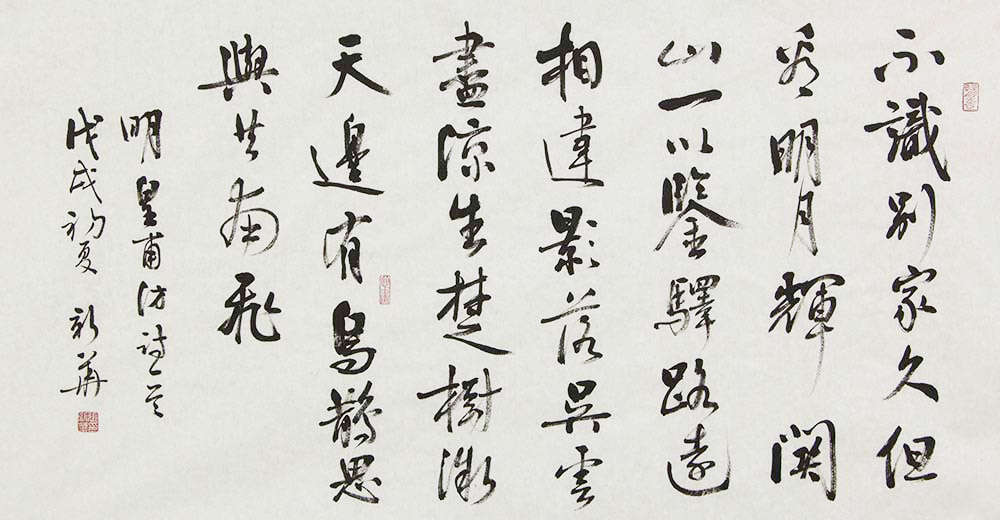 不識別家久但
看明月輝關
山一以鑒驛路遠
相違影落吳雲
盡涼生楚樹微
天邊有烏鵲思
與共南飛
明皇甫汸詩一首
戊戌初夏新華